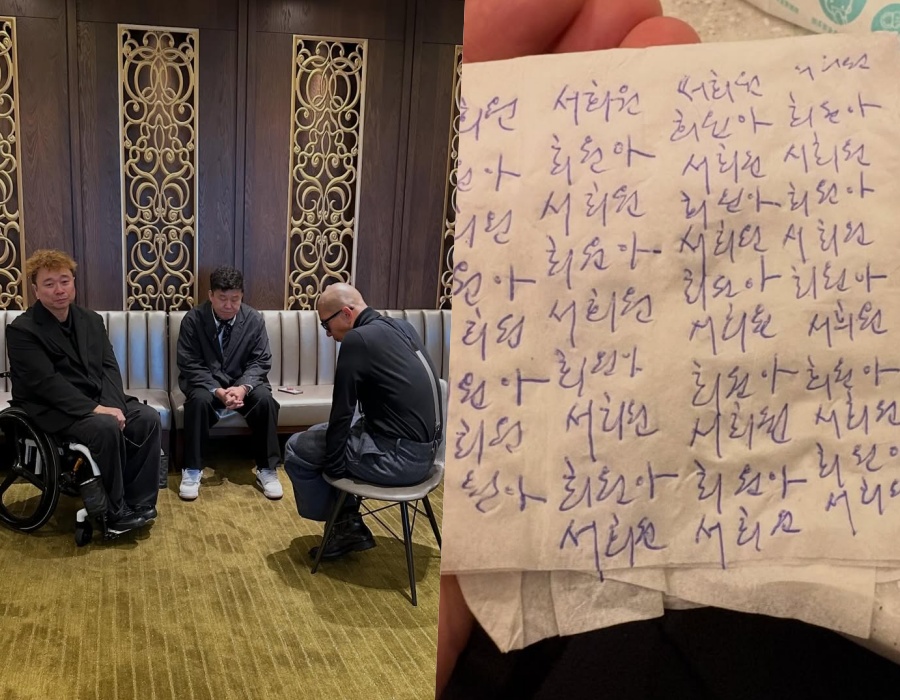 희원 서희원 서희원 서희원
희원아 희원아
원아 희원아 서희원 서희원
희원 서희원 희원아 희원아
원아 희원아 서희원 서희원
희원아 희원아
희원 서희원 서희원 서희원
원아 희원아 희원아 희원아
희원 서희원 서희원 서희원
원아 희원아 희원아 희원
서희원 서희원 서희원